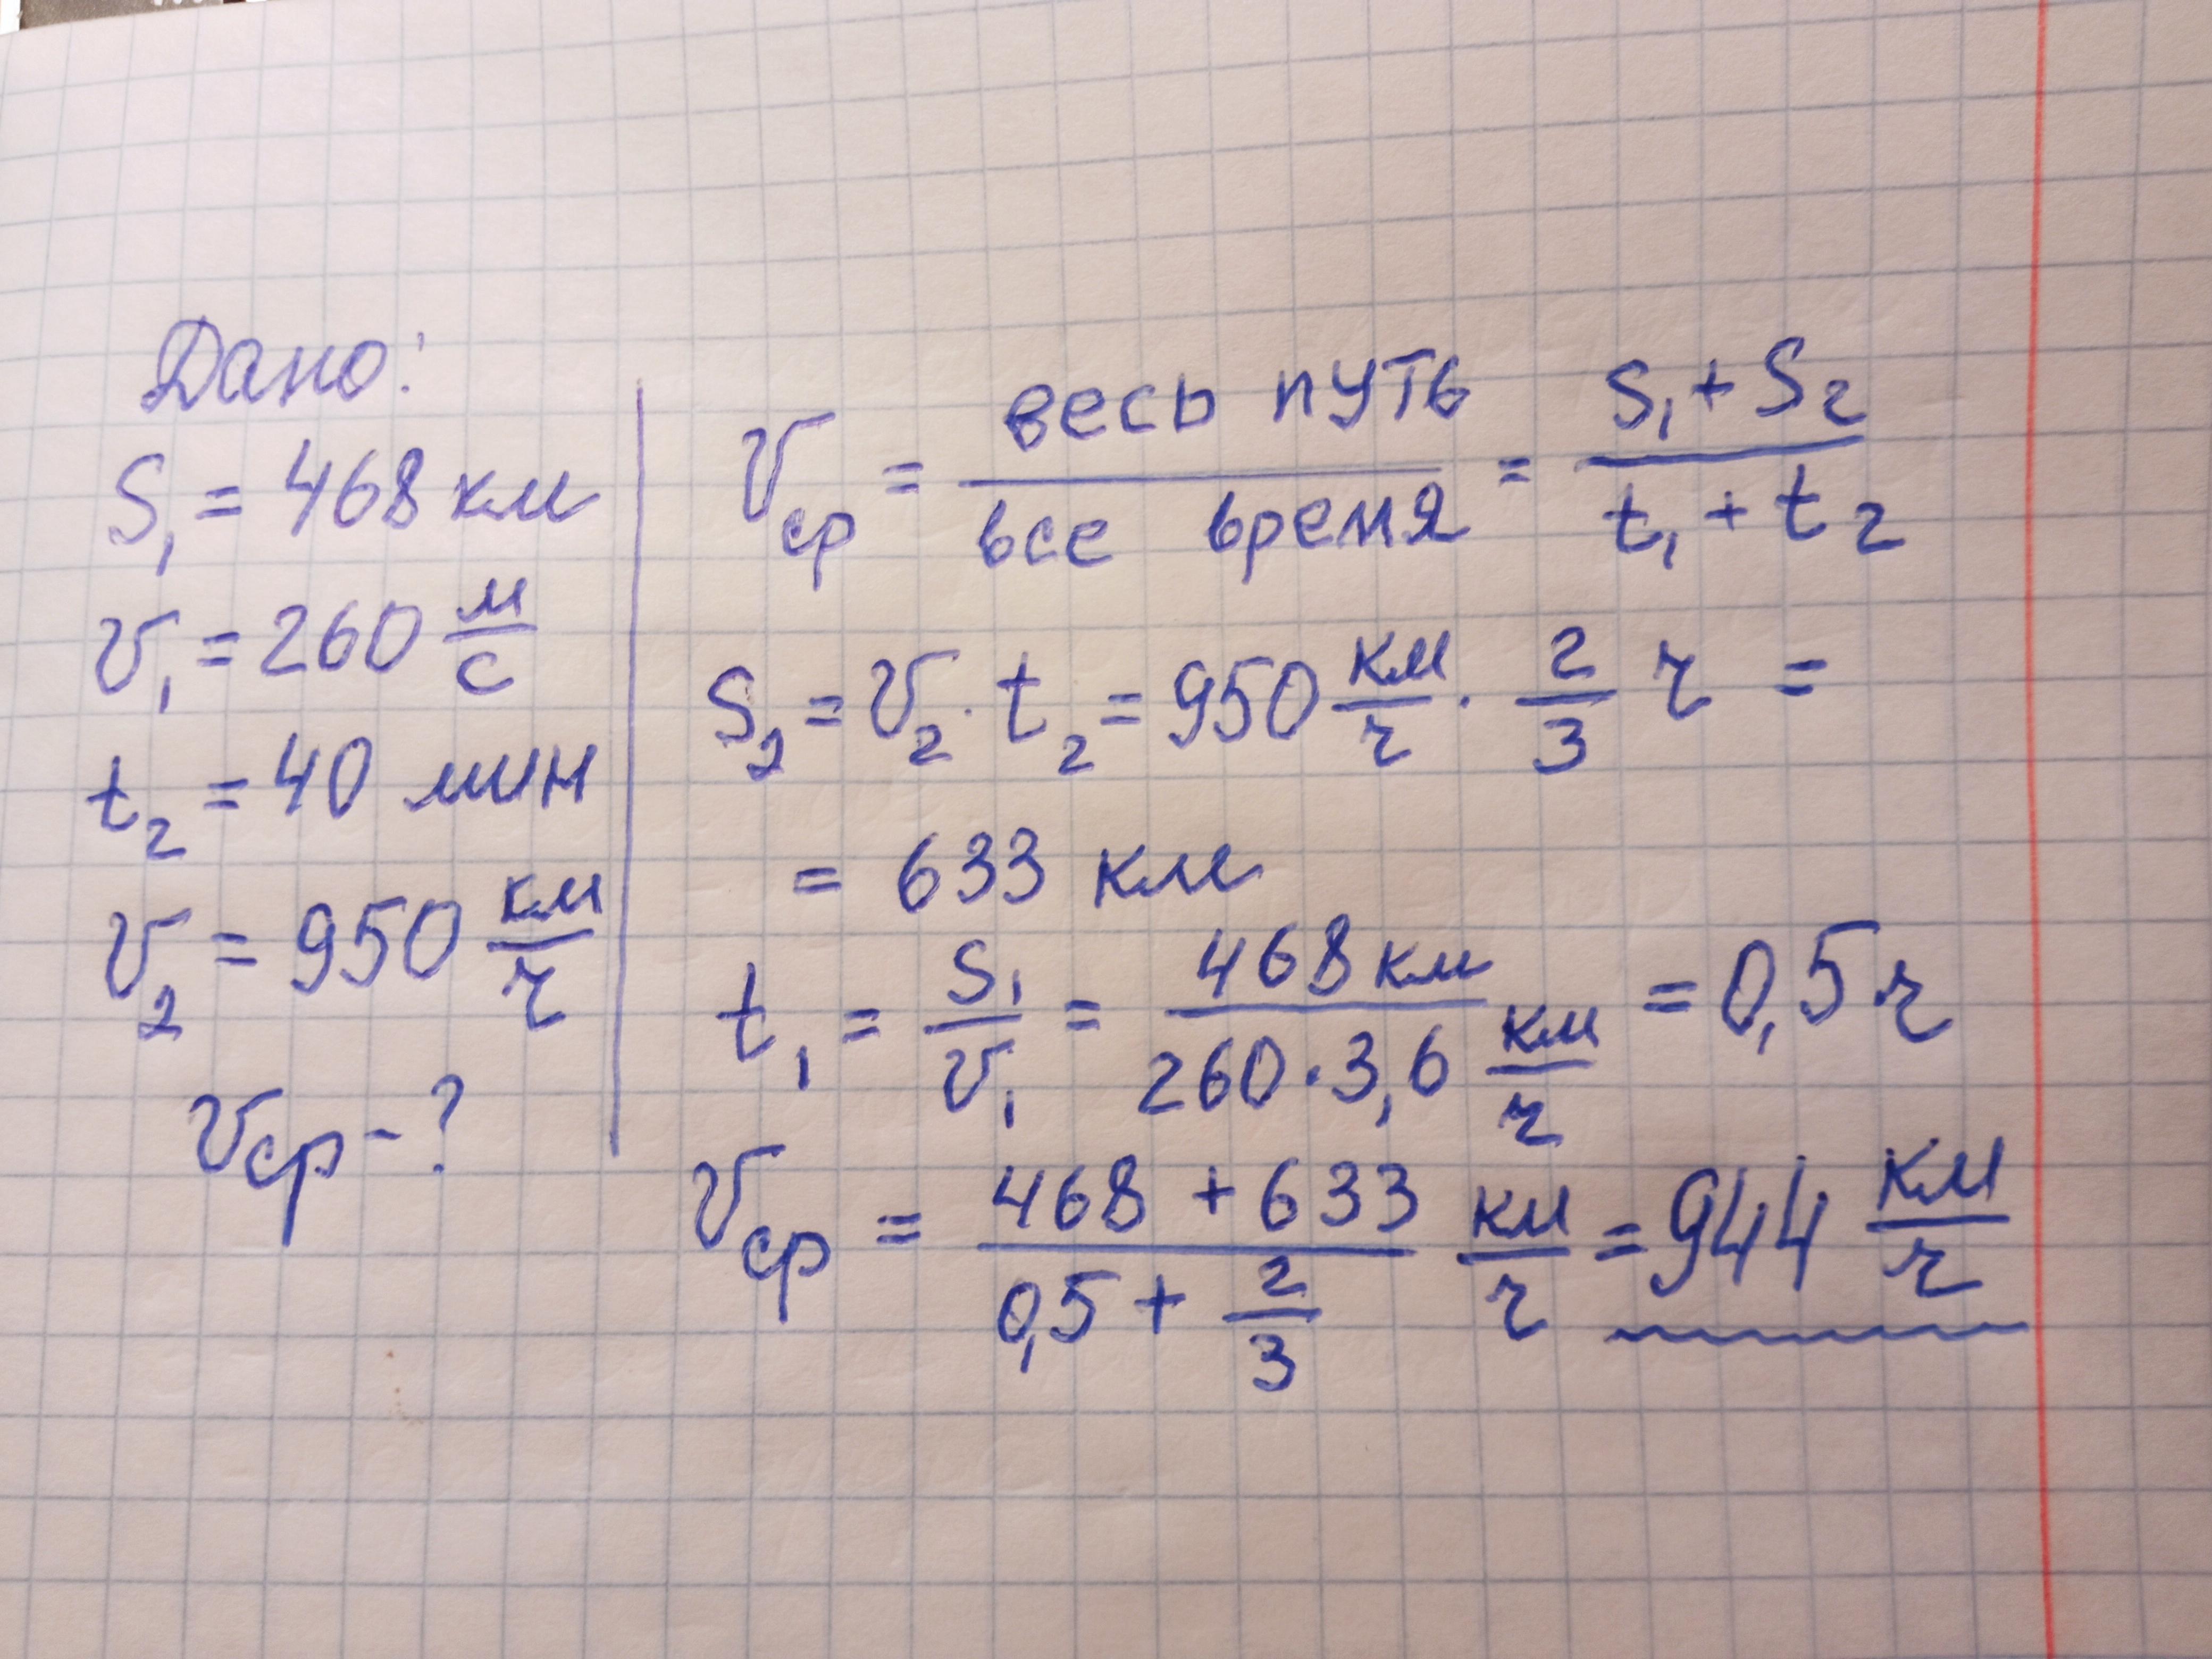 Дано:
S₁ = 468 км
v₁ = 260 м/с
t₂ = 40 мин
v₂ = 950 км/ч
vср - ?
vср = весь путь / все время = (S₁ + S₂) / (t₁ + t₂)
S₂ = v₂ · t₂ = 950 км/ч · 2/3 ч =
= 633 км
t₁ = S₁ / v₁ = 468 км / (260 · 3,6 км/ч) = 0,5 ч
vср = (468 + 633) / (0,5 + 2/3) км/ч = 944 км/ч